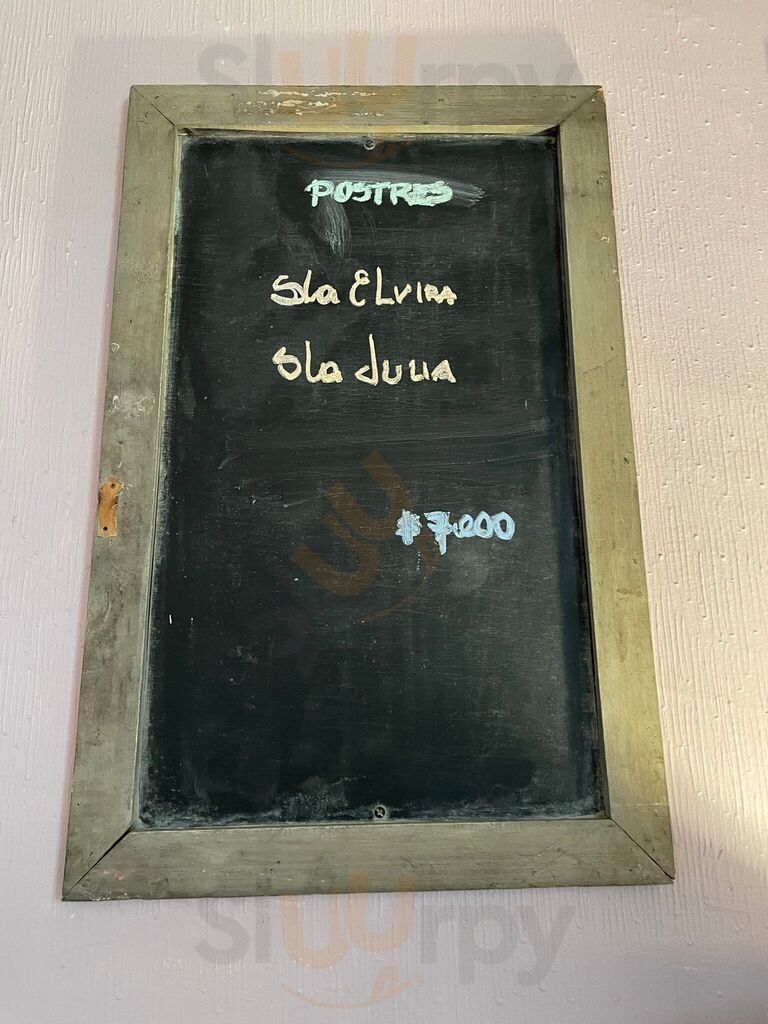 slUUrpy
POSTRES
Sla ELVIRA
Sla Julia
$7.000
slUUrpy